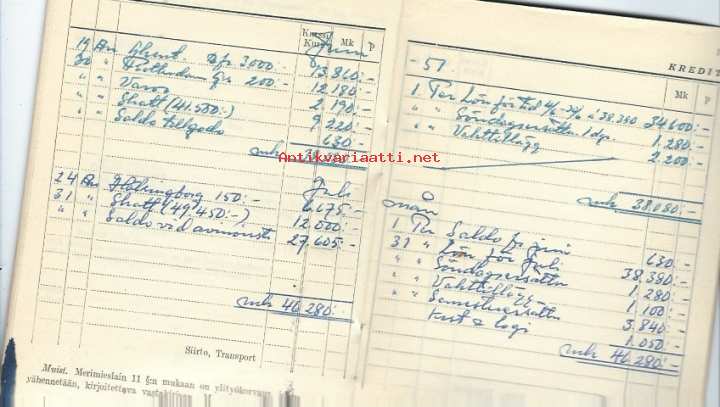 Kurssi Kurs Mk P
Juni
19 An Kont. Dfr. 3000:- 13.860:-
30 " Rotterdam Gu 200:- 12.180:-
" " Varor 2.190:-
" " Skatt (41.550:-) 9.220:-
" " Saldo tillgodo 630:-
mk
Antikvariaatti.net
Juli
24 An Hälsingborg 150:- 6.675:-
31 " Skatt (49.450:-) 12.000:-
" " Saldo vid avmönstr. 27.605:-
mk 46.280:-
Siirto, Transport
Muist. Merimieslain 11 §:n mukaan on ylityökorvaus
vähennetään, kirjoitettava
-51. KREDIT
Mk P
1 Per Lön för tid 4/6-30/6 à 38.380 34600:-
" " Söndagsersättn. 1 dp. 1.280:-
" " Vakttillägg 2.200:-
mk 38.080:-
1 Per Saldo fr. juni 630:-
31 " Lön för Juli 38.380:-
" " Söndagsersättn 1.280:-
" " Vakttillägg 1.100:-
" " 3.840:-
Kost & logi 1.050:-
mk 46.280:-